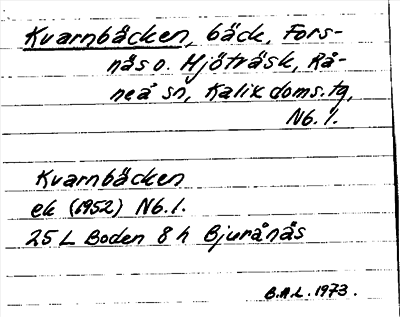 Kvarnbäcken, bäck, Fors-
näs o. Mjöträsk, Rå-
neå sn, Kalix doms.tg,
Nb. l.
Kvarnbäcken
ek (1952) Nb. l.
25 L Boden 8 h Bjurånäs
B.A.L. 1973.